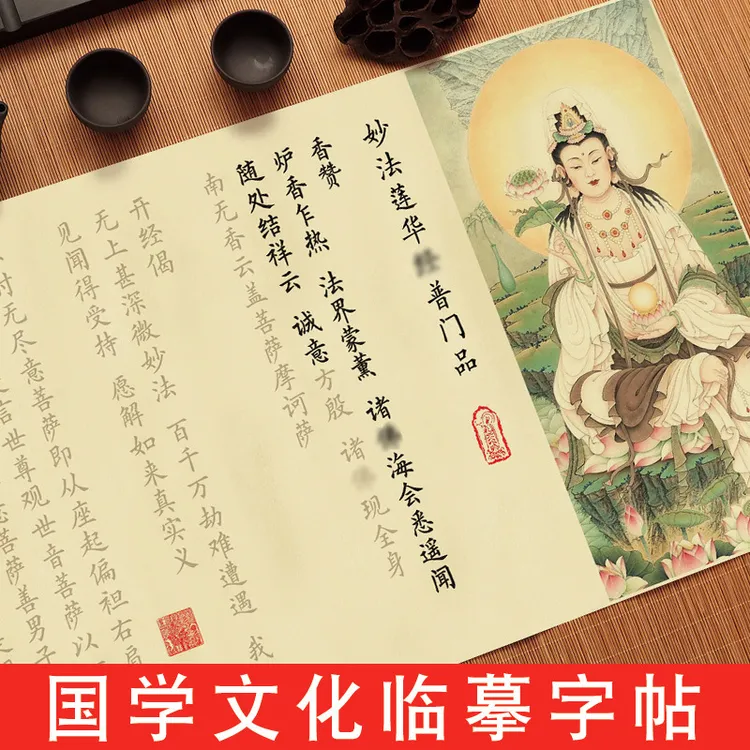 妙法莲华普门品
香赞
炉香乍热 法界蒙薰 诸海会悉遥闻
随处结祥云 诚意方殷 诸现全身
南无香云盖菩萨摩诃萨
开经偈
无上甚深微妙法 百千万劫难遭遇 我
见闻得受持 愿解如来真实义
时无尽意菩萨即从座起偏袒右
言世尊观世音菩萨以
菩萨善男子
国学文化临摹字帖